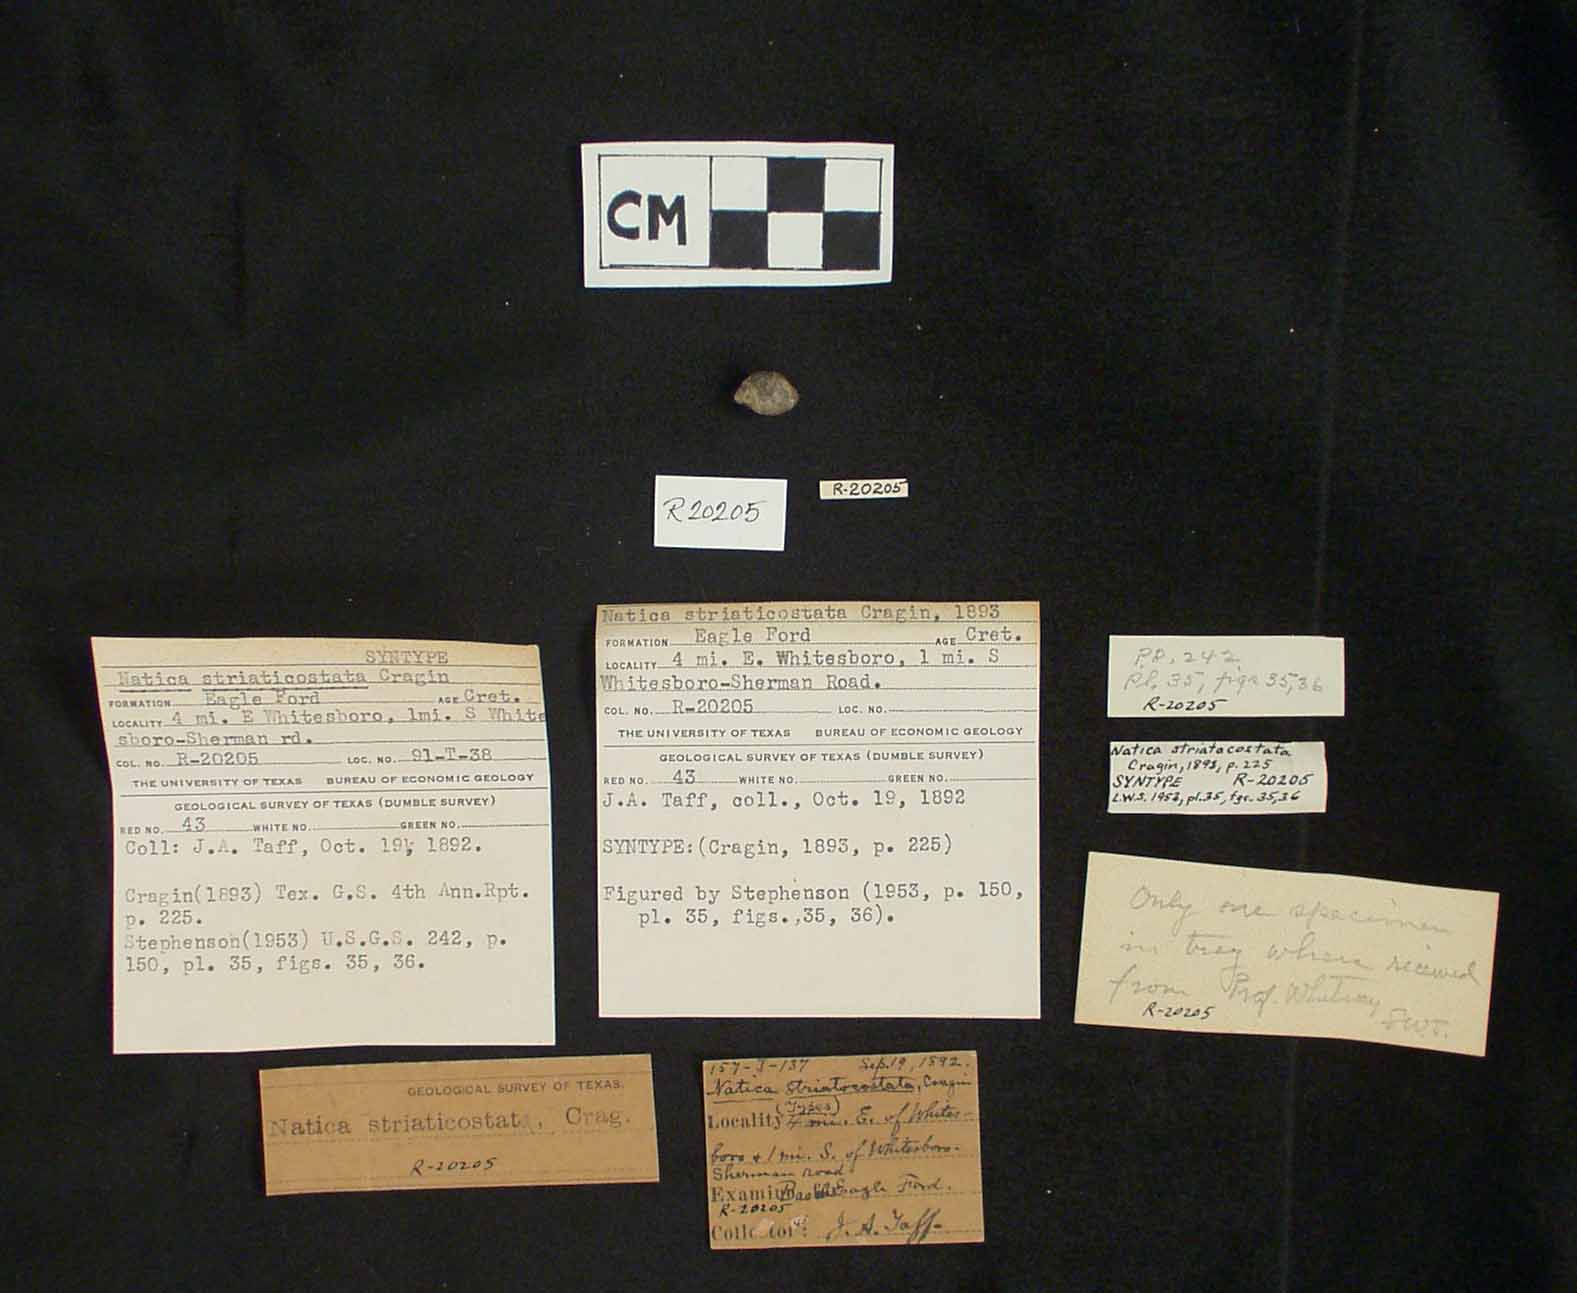 CM
R20205
R-20205
SYNTYPE
Natica striaticostata Cragin
FORMATION Eagle Ford AGE Cret.
LOCALITY 4 mi. E Whitesboro, 1mi. S White
sboro-Sherman rd.
COL. NO. R-20205 LOC. NO. 91-T-38
THE UNIVERSITY OF TEXAS BUREAU OF ECONOMIC GEOLOGY
GEOLOGICAL SURVEY OF TEXAS (DUMBLE SURVEY)
RED NO. 43 WHITE NO. GREEN NO.
Coll: J.A. Taff, Oct. 19, 1892.
Cragin(1893) Tex. G.S. 4th Ann.Rpt.
p. 225.
Stephenson(1953) U.S.G.S. 242, p.
150, pl. 35, figs. 35, 36.
Natica striaticostata Cragin, 1893
FORMATION Eagle Ford AGE Cret.
LOCALITY 4 mi. E. Whitesboro, 1 mi. S
Whitesboro-Sherman Road.
COL. NO. R-20205 LOC. NO.
THE UNIVERSITY OF TEXAS BUREAU OF ECONOMIC GEOLOGY
GEOLOGICAL SURVEY OF TEXAS (DUMBLE SURVEY)
RED NO. 43 WHITE NO. GREEN NO.
J.A. Taff, coll., Oct. 19, 1892
SYNTYPE:(Cragin, 1893, p. 225)
Figured by Stephenson (1953, p. 150,
pl. 35, figs.,35, 36).
P.P. 242
Pl. 35, figs 35,36
R-20205
Natica striatacostata
Cragin, 1893, p. 225
SYNTYPE R-20205
L.W.S. 1953, pl.35, fgs. 35,36
Only one specimen
in tray when received
from Prof. Whitney
R-20205 LWS.
GEOLOGICAL SURVEY OF TEXAS.
Natica striaticostata, Crag.
R-20205
157-J-137 Sep. 19, 1892.
Natica striatocostata, Cragin
(Types)
Locality 4 mi. E. of Whites-
boro & 1 mi. S. of Whitesboro-
Sherman road
Eagle Ford.
R-20205
Collector: J. A. Taff